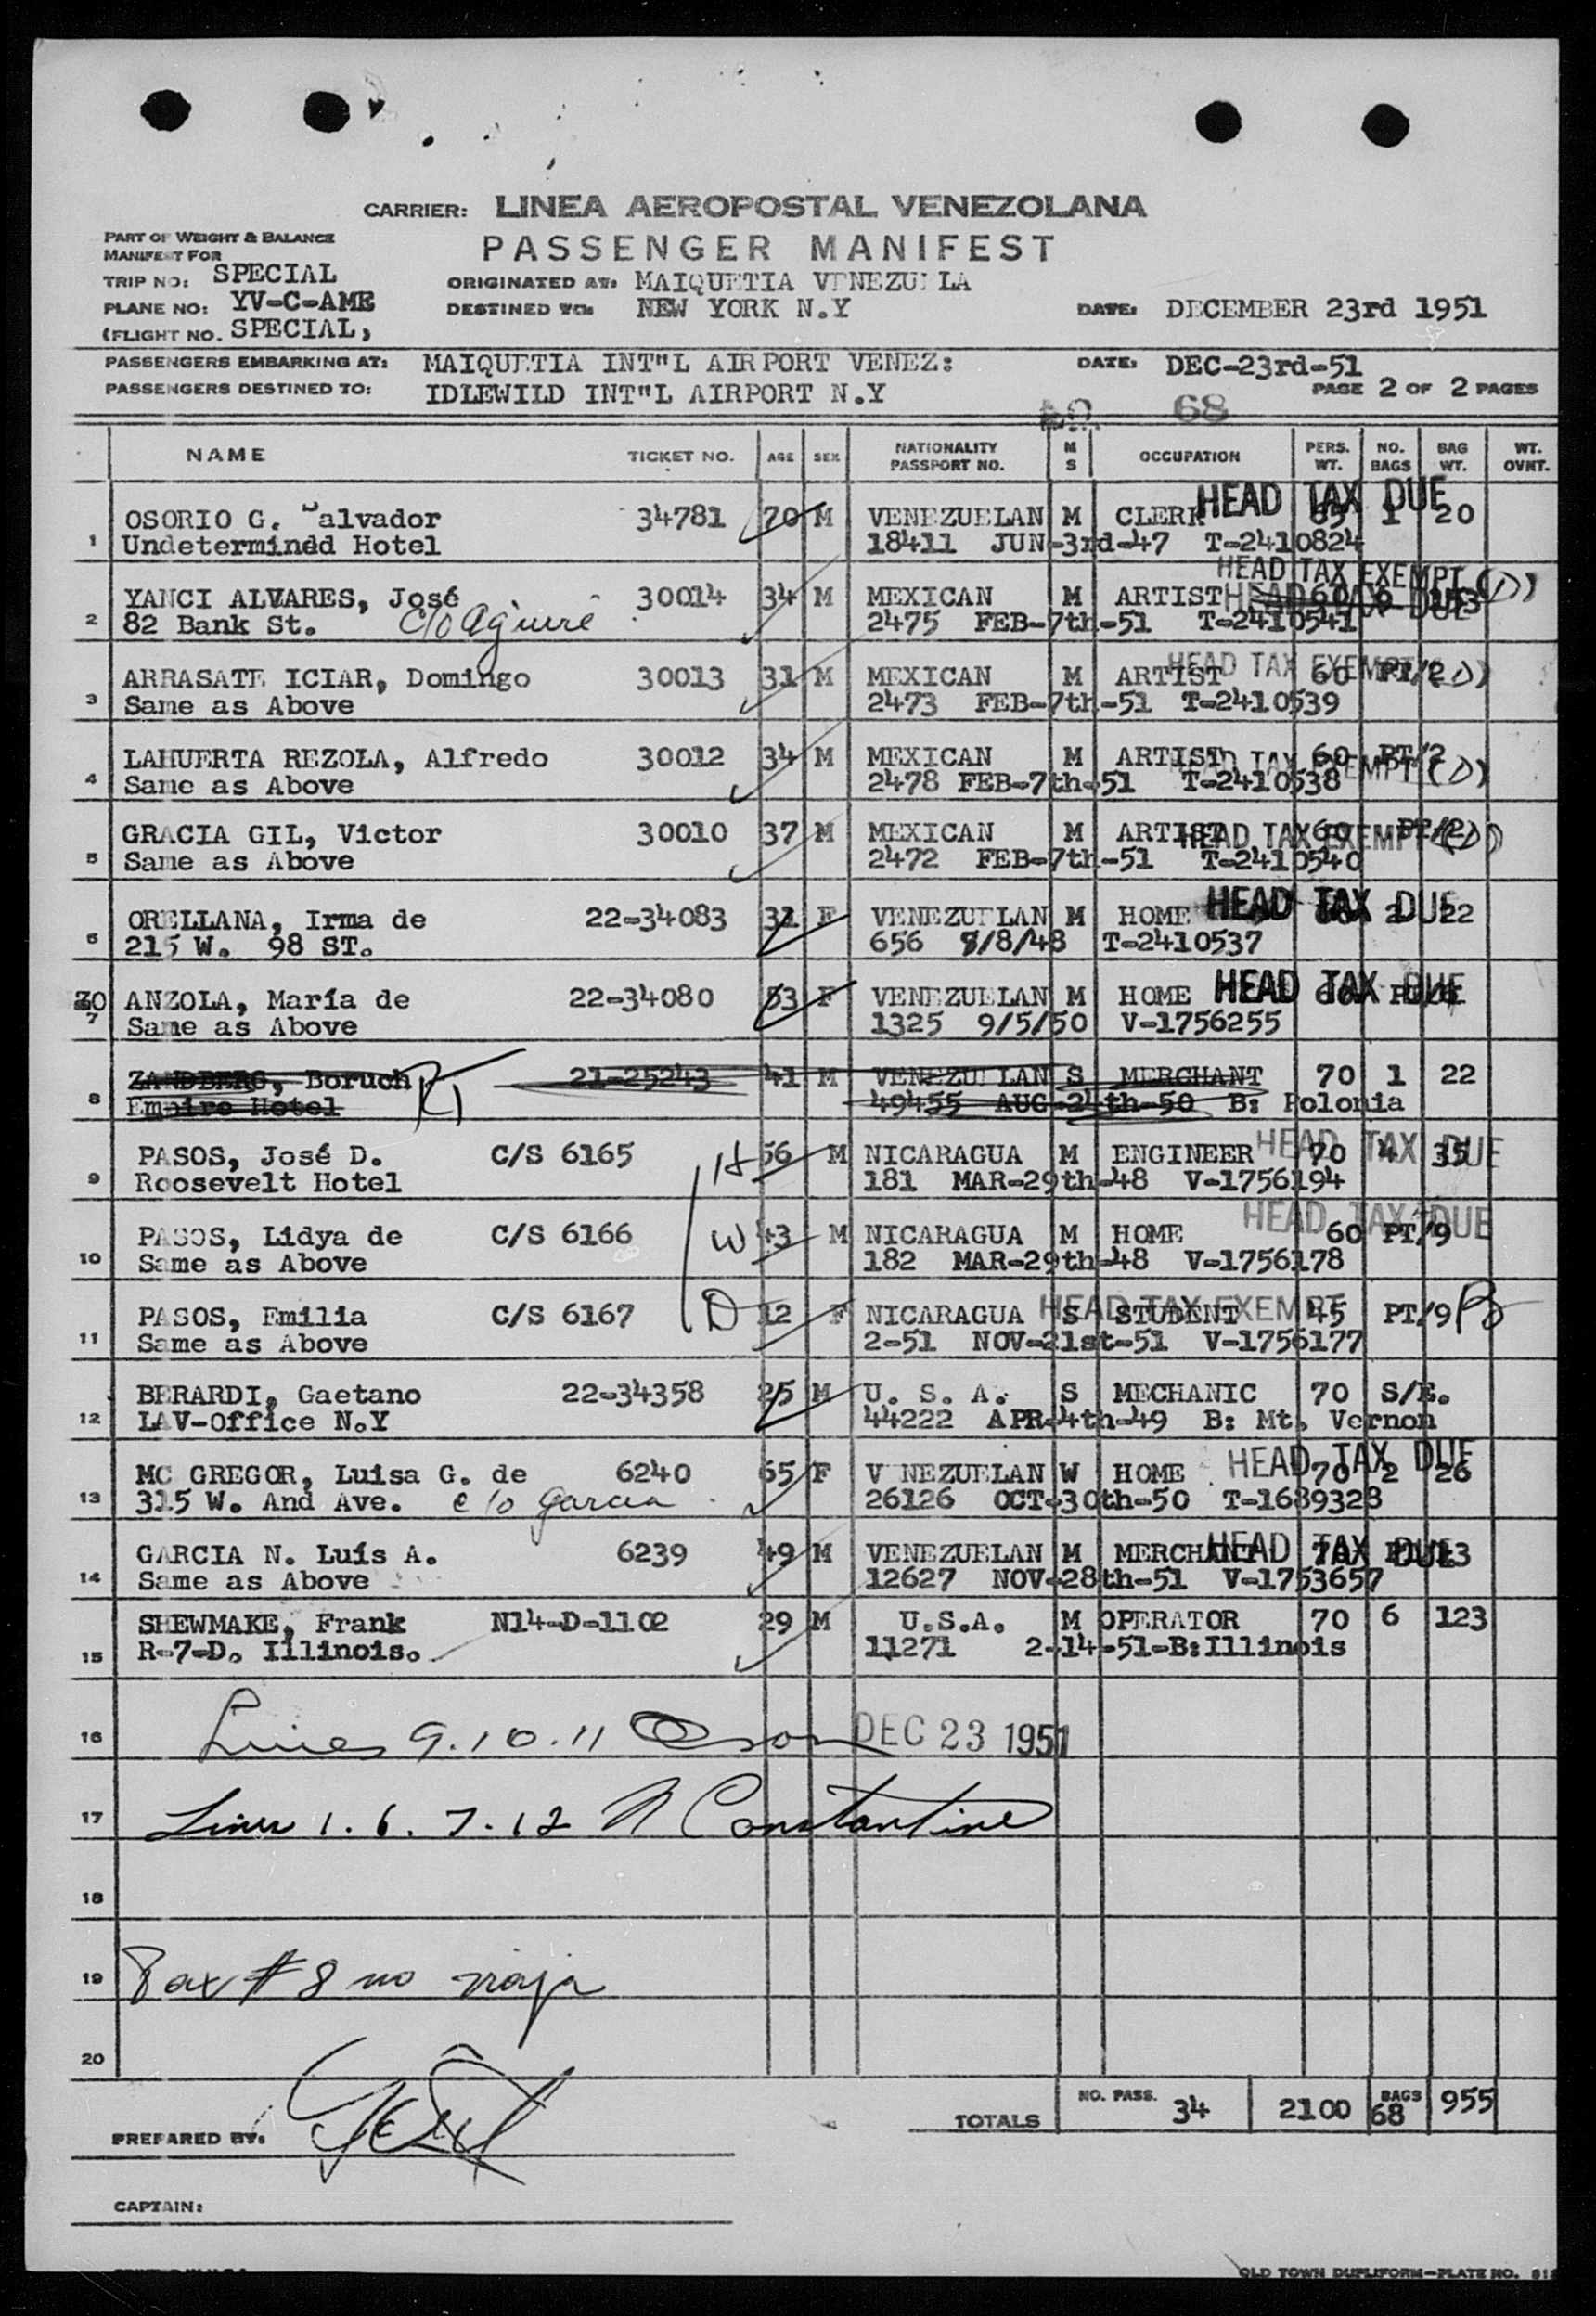 CARRIER: LINEA AEROPOSTAL VENEZOLANA
PASSENGER MANIFEST
PART OF WEIGHT & BALANCE
MANIFEST FOR
TRIP NO: SPECIAL
PLANE NO: YV-C-AME
(FLIGHT NO. SPECIAL,
ORIGINATED AT: MAIQUETIA VENEZUELA
DESTINED TO: NEW YORK N.Y
DATE: DECEMBER 23rd 1951
PASSENGERS EMBARKING AT: MAIQUETIA INT"L AIRPORT VENEZ: DATE: DEC-23rd-51
PASSENGERS DESTINED TO: IDLEWILD INT"L AIRPORT N.Y PAGE 2 OF 2 PAGES
68
NAME TICKET NO. AGE SEX NATIONALITY PASSPORT NO. M S OCCUPATION PERS. WT. NO. BAGS BAG WT. WT. OVNT.
1 OSORIO G. Salvador 34781 70 M VENEZUELAN M CLERK HEAD TAX DUE 1 20
Undetermindd Hotel 18411 JUN-3rd-47 T-2410824
HEAD TAX EXEMPT (D)
2 YANCI ALVARES, José 30014 34 M MEXICAN M ARTIST HEAD TAX DUE 60 6 153
82 Bank St. c/o Aguirre 2475 FEB-7th-51 T-2410541
3 ARRASATE ICIAR, Domingo 30013 31 M MEXICAN M ARTIST HEAD TAX EXEMPT (D) 60 PT/2
Same as Above 2473 FEB-7th-51 T-2410539
4 LAHUERTA REZOLA, Alfredo 30012 34 M MEXICAN M ARTIST HEAD TAX EXEMPT (D) 60 PT/2
Same as Above 2478 FEB-7th-51 T-2410538
5 GRACIA GIL, Victor 30010 37 M MEXICAN M ARTIST HEAD TAX EXEMPT (D) 60 PT/2
Same as Above 2472 FEB-7th-51 T-2410540
6 ORELLANA, Irma de 22-34083 31 F VENEZUELAN M HOME HEAD TAX DUE 2 22
215 W. 98 ST. 656 8/8/48 T-2410537
30 7 ANZOLA, María de 22-34080 53 F VENEZUELAN M HOME HEAD TAX DUE
Same as Above 1325 9/5/50 V-1756255
8 ZANDBERG, Boruch 21-25243 41 M VENEZUELAN S MERCHANT 70 1 22
Empire Hotel 49455 AUG-24th-50 B: Polonia
9 PASOS, José D. C/S 6165 H 56 M NICARAGUA M ENGINEER HEAD TAX DUE 70 4 35
Roosevelt Hotel 181 MAR-29th-48 V-1756194
10 PASOS, Lidya de C/S 6166 W 43 M NICARAGUA M HOME HEAD TAX DUE 60 PT/9
Same as Above 182 MAR-29th-48 V-1756178
11 PASOS, Emilia C/S 6167 D 12 F NICARAGUA S STUDENT HEAD TAX EXEMPT 45 PT/9
Same as Above 2-51 NOV-21st-51 V-1756177
12 BERARDI, Gaetano 22-34358 25 M U. S. A. S MECHANIC 70 S/E.
LAV-Office N.Y 44222 APR-4th-49 B: Mt. Vernon
13 MC GREGOR, Luisa G. de 6240 65 F VENEZUELAN W HOME HEAD TAX DUE 70 2 26
315 W. And Ave. c/o Garcia 26126 OCT-30th-50 T-1689328
14 GARCIA N. Luís A. 6239 49 M VENEZUELAN M MERCHANT HEAD TAX DUE 70
Same as Above 12627 NOV-28th-51 V-1753657
15 SHEWMAKE, Frank N14-D-1102 29 M U.S.A. M OPERATOR 70 6 123
R-7-D. Illinois. 11271 2-14-51-B:Illinois
16 Lines 9.10.11 DEC 23 1951
17 Lines 1. 6. 7. 12 N Constantine
18
19 Pax # 8 no viaja
20
TOTALS NO. PASS. 34 2100 BAGS 68 955
PREPARED BY:
CAPTAIN:
OLD TOWN DUPLIFORM-PLATE NO.